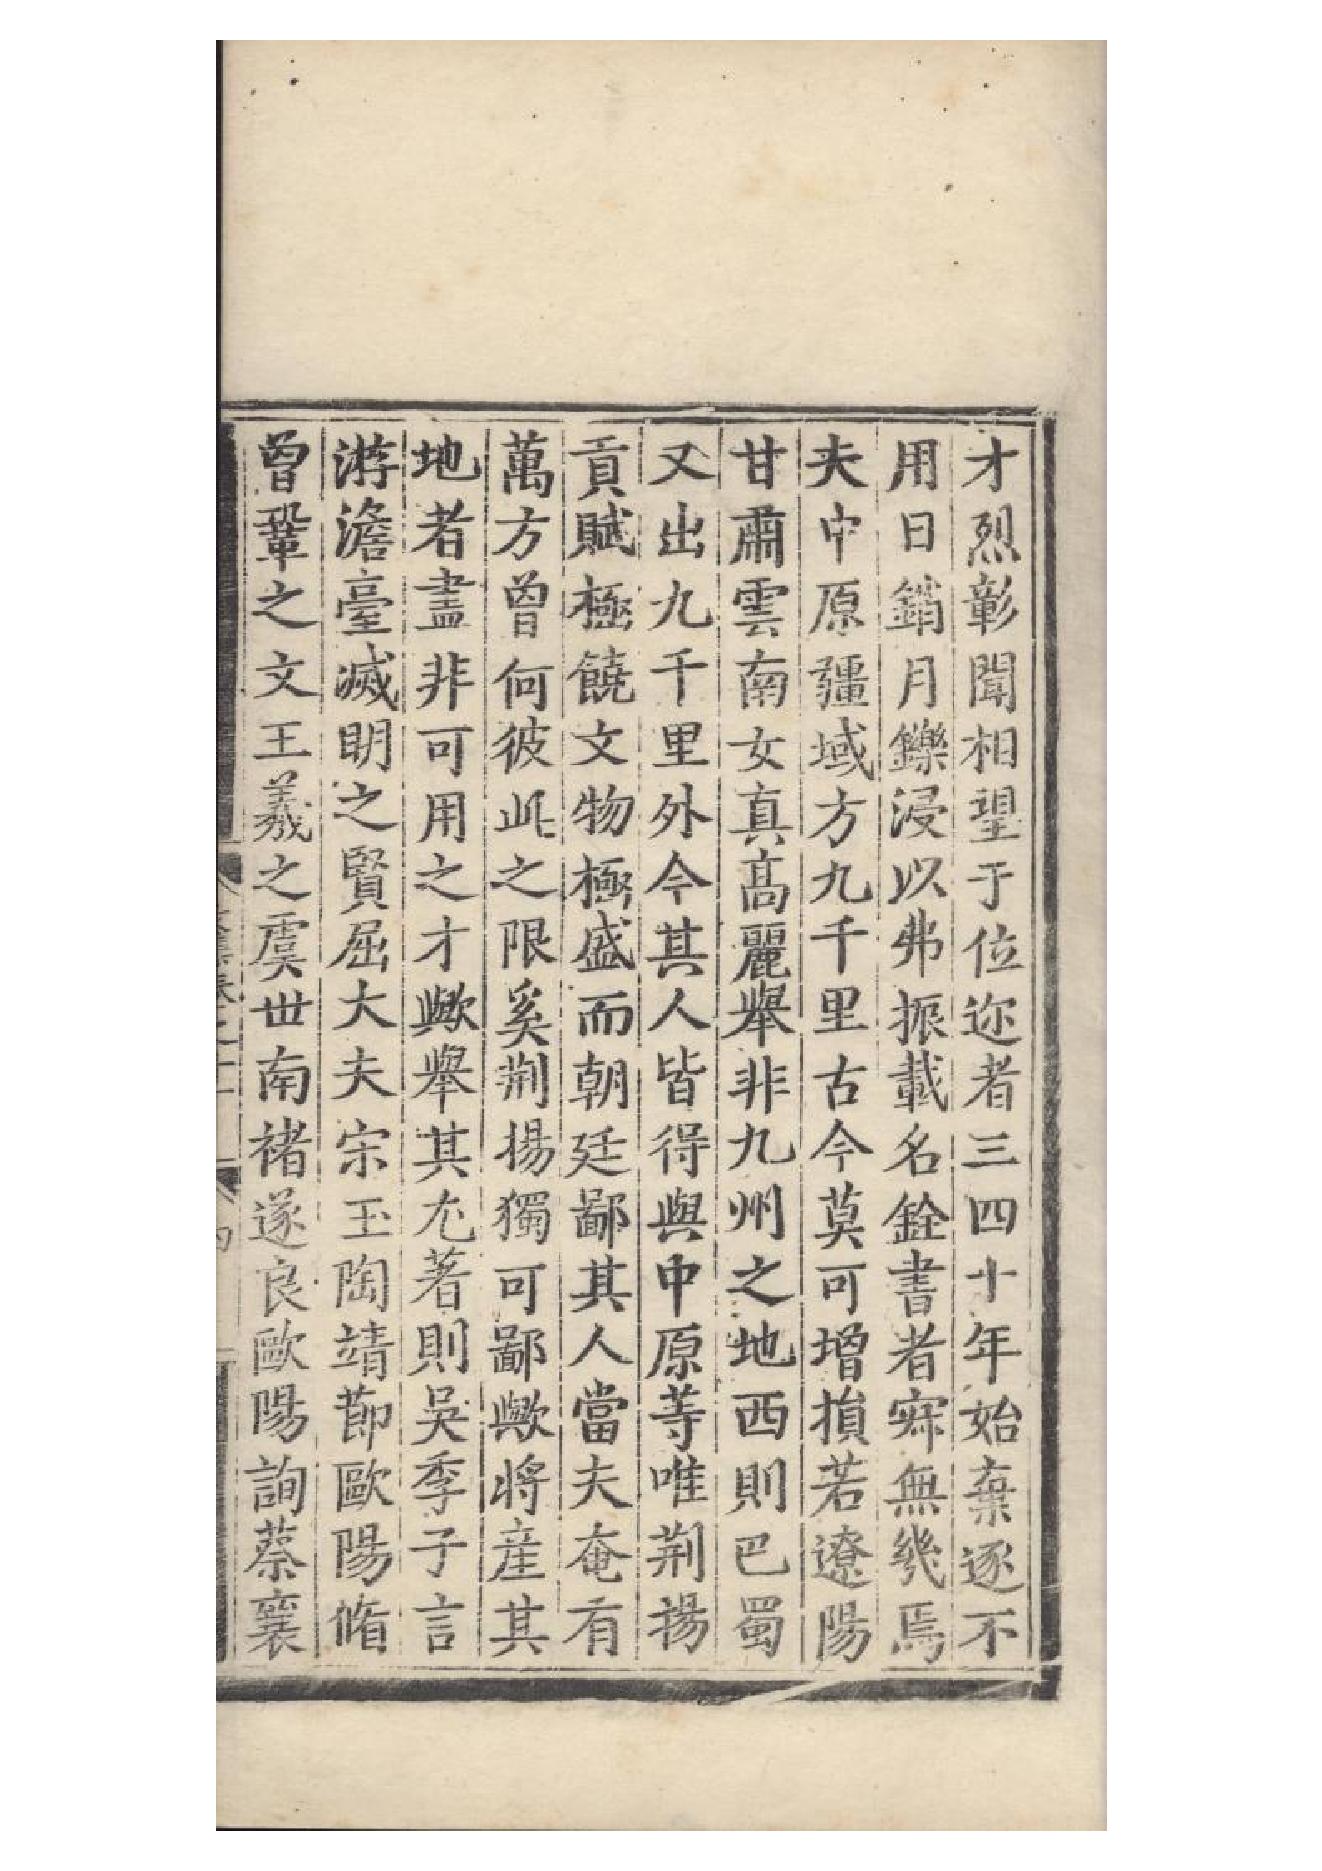 才烈彰聞相望于位迩者三四十年始棄逐不
用日銷月鑠浸以弗振載名銓書者寂無幾焉
夫中原疆域方九千里古今莫可增損若遼陽
甘肅雲南女真高麗舉非九州之地西則巴蜀
又出九千里外今其人皆得與中原等唯荆揚
貢賦極饒文物極盛而朝廷鄙其人當夫奄有
萬方曾何彼此之限奚荆揚獨可鄙歟将産其
地者盡非可用之才歟舉其尤著則吳季子言
游澹臺滅明之賢屈大夫宋玉陶靖節歐陽脩
曾鞏之文王羲之虞世南褚遂良歐陽詢蔡襄